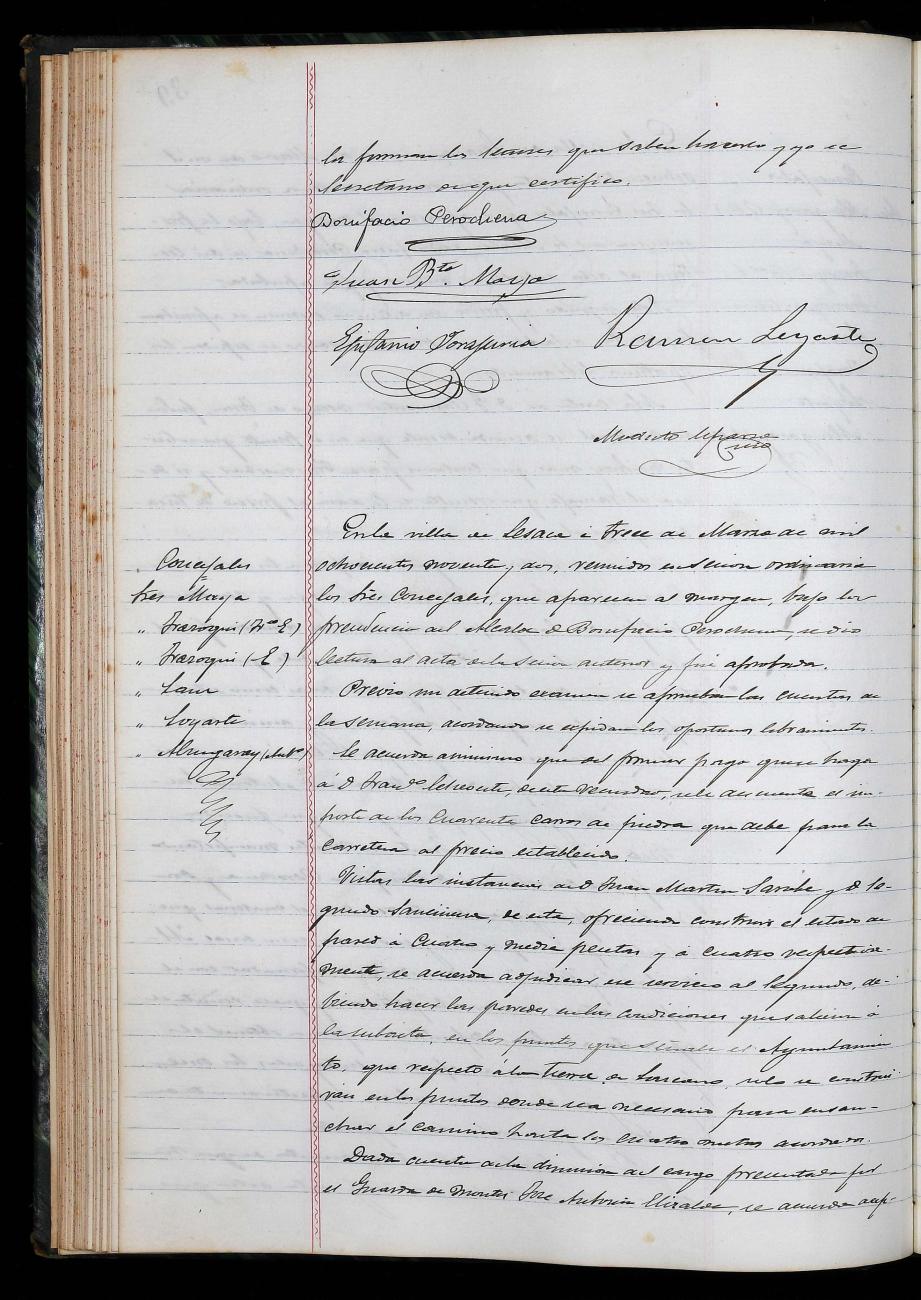 la firman los señores que saben hacerlo y yo el
Secretario de que certifico.
Bonifacio Perochena
Juan Bta. Maya
Epifanio Yrazusta Ramon Legarte
Modesto
En la villa de Lesaca á trece de Marzo de mil
ochocientos noventa y dos, reunidos en sesion ordinaria
los Sres Concejales, que aparecen al margen, bajo la
presidencia del Alcalde D Bonifacio Perochena, se dio
lectura al acta de la sesion anterior y fué aprobada.
Concejales
Sres Maya
" Irazoqui (Fco E)
" Irazoqui (E)
" Sanz
" Legarte
" Almagaray
Previo un detenido examen se aprueban las cuentas de
la semana, acordando se espidan los oportunos libramientos.
Se acuerda asimismo que del primer pago que se haga
á D Frandco de este vecindario, se le descuente el im-
porte de los cuarenta carros de piedra que debe para la
carretera al precio establecido.
Vistas las instancias de D Juan Martin Sarobe y D Se-
gundo de esta, ofreciendo construir el estado de
pared á cuatro y media pesetas y á cuatro respectiva-
mente, se acuerda adjudicar ese servicio al Segundo, de-
biendo hacer las paredes en las condiciones que salieron á
la subasta, en los puntos que señale el Ayuntamien
to, que respecto á la tierra de solo se construi
rán en los puntos donde sea necesario para ensan-
char el camino hasta los cuatro metros acordados.
Dada cuenta de la dimision del cargo presentada por
el Guarda de montes José Antonio Elizalde, se acuerda acep-